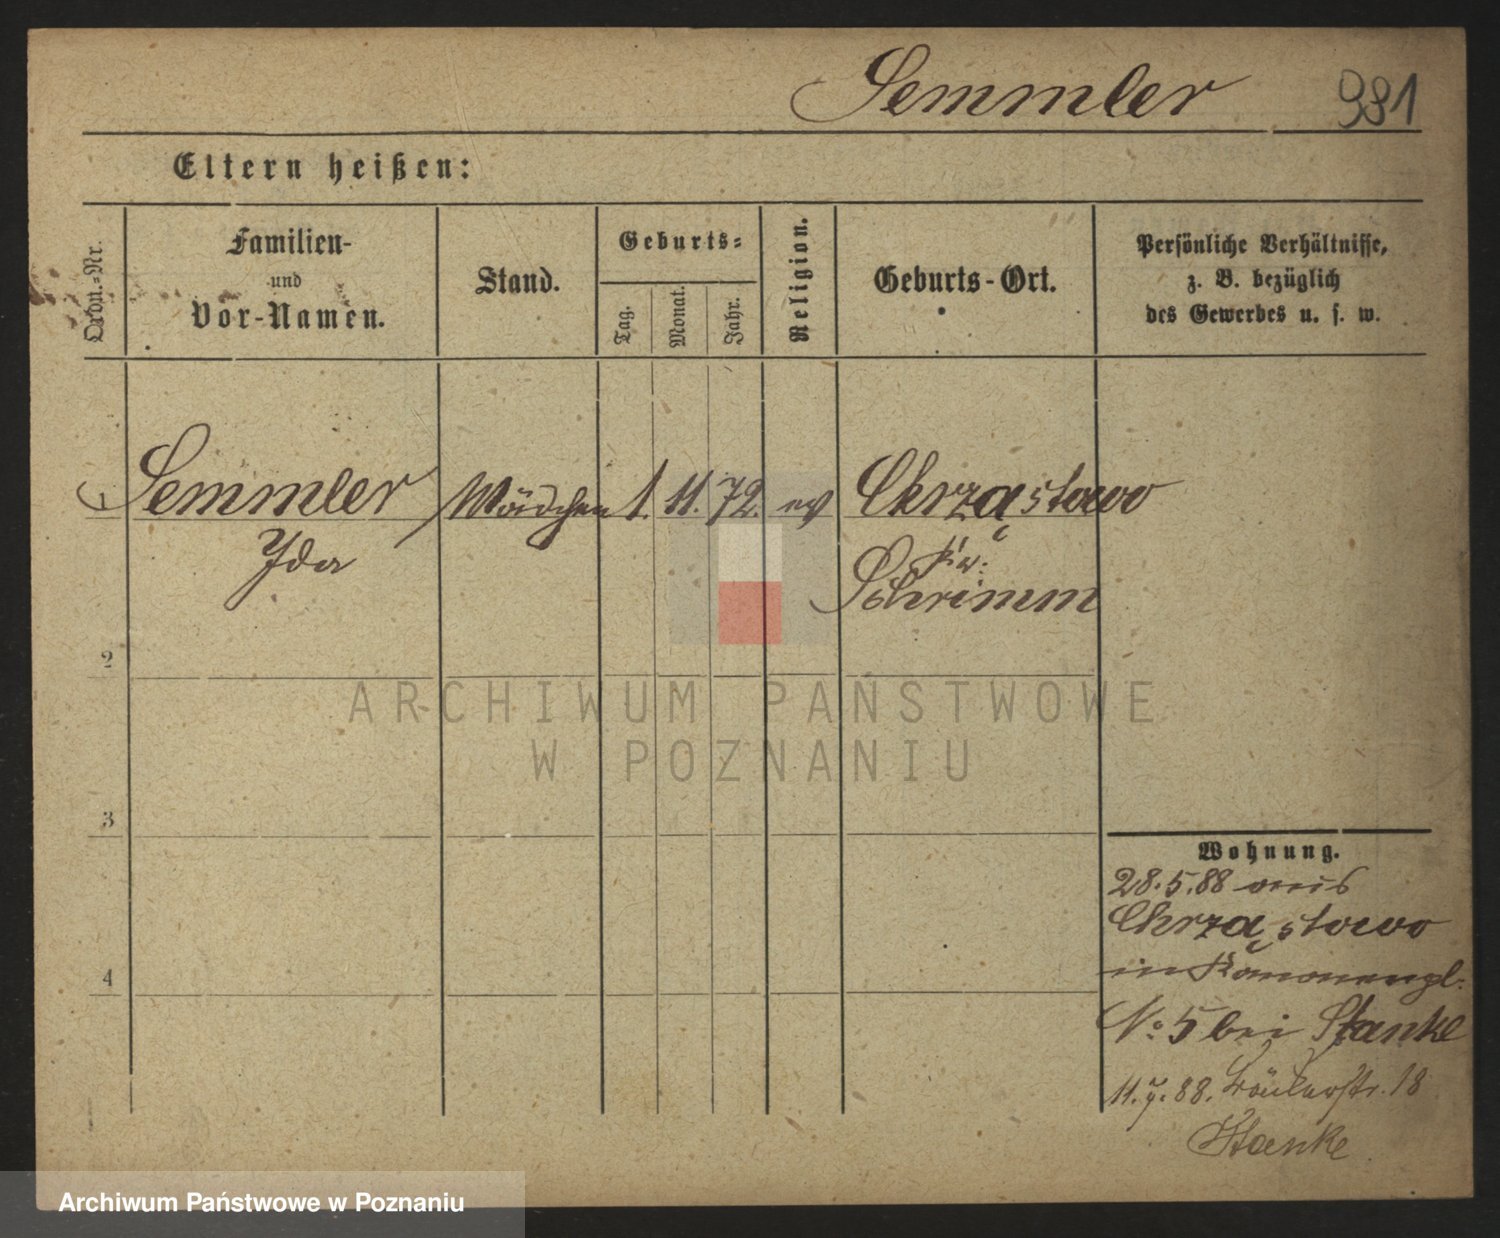 Semmler 981
Eltern heißen:
Ordn.-Nr.
Familien-
und
Vor-Namen.
Stand.
Geburts-
Tag.
Monat.
Jahr.
Religion.
Geburts-Ort.
Persönliche Verhältnisse,
z. B. bezüglich
des Gewerbes u. s. w.
1 Semmler Mädchen 1. 11. 72. ev Chrząstowo
Ida Kr:
Schrimm
2
3
4
Wohnung.
28.5.88 aus
Chrząstowo
in Kanonenpl.
No 5 bei Stanke
11.7.88. Bäckerstr. 18
Stanke
ARCHIWUM PAŃSTWOWE
W POZNANIU
Archiwum Państwowe w Poznaniu